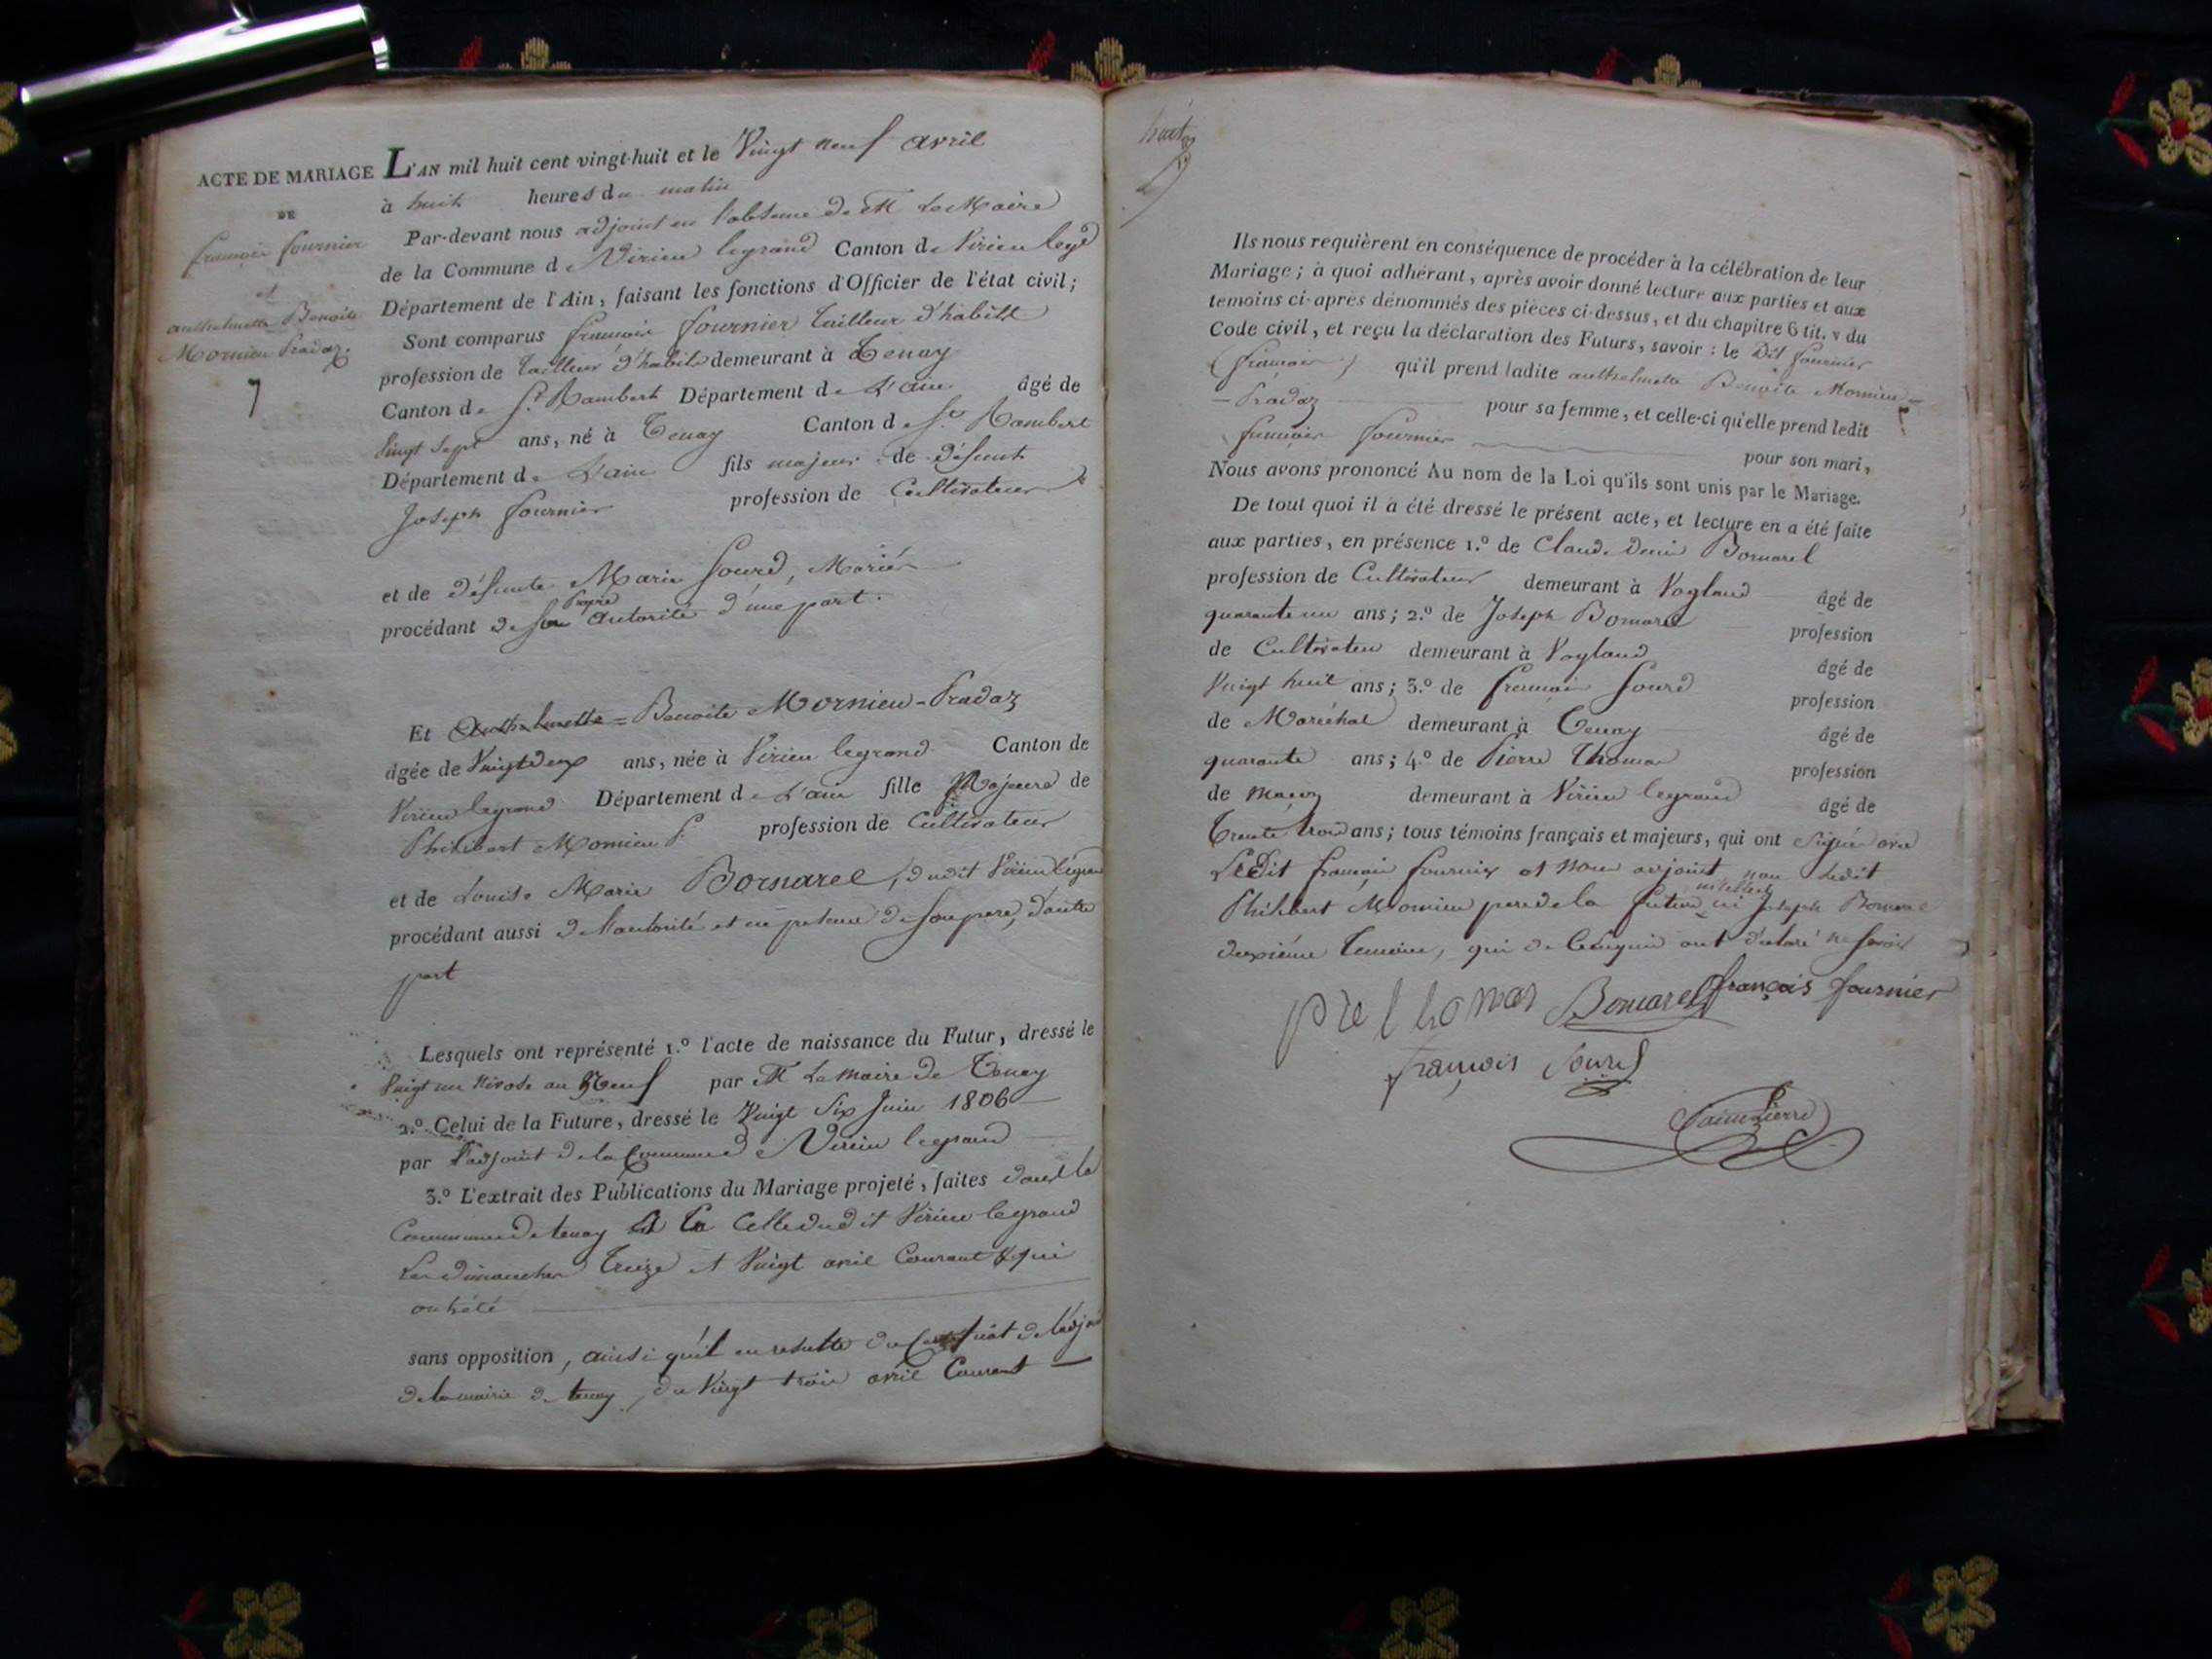 ACTE DE MARIAGE
DE
françois fournier
et
anthelmette Benoite
Mornieu Pradaz.
7
L'AN mil huit cent vingt-huit et le Vingt neuf avril
à huit heures du matin
Par-devant nous adjoint en l'absence de M. Le Maire
de la Commune de Virieu legrand Canton de Virieu legd
Département de l'Ain, faisant les fonctions d'Officier de l'état civil;
Sont comparus françois fournier tailleur d'habits
profession de tailleur d'habits demeurant à Tenay
Canton de St. Rambert Département de L'ain âgé de
Vingt Sept ans, né à Tenay Canton de St. Rambert
Département de L'ain fils majeur de défunt
Joseph fournier profession de Cultivateur
et de défunte Marie Sourd, Mariés
procédant de son propre autorité d'une part.
Et Anthelmette = Benoite Mornieu - Pradaz
âgée de Vingt deux ans, née à Virieu legrand Canton de
Virieu legrand Département de L'ain fille Majeure de
Philibert Mornieu P. profession de Cultivateur
et de Louise Marie Bornarel, dudit Virieu legrand
procédant aussi de l'autorité et en présence de Son père, d'autre
part
Lesquels ont représenté 1.º l'acte de naissance du Futur, dressé le
Vingt un Nivose an Neuf par M. Le Maire de Tenay
2.º Celui de la Future, dressé le Vingt Six Juin 1806
par L'adjoint de la Commune de Virieu legrand
3.º L'extrait des Publications du Mariage projeté, faites dans la
Commune de tenay et Celle dudit Virieu legrand
Les dimanches Treize et Vingt avril Courant & qui
ont été
sans opposition, ainsi qu'il en resulte du Certificat de l'adjoint
de la mairie de tenay, du Vingt trois avril Courant
huit
Ils nous requièrent en conséquence de procéder à la célébration de leur
Mariage; à quoi adhérant, après avoir donné lecture aux parties et aux
témoins ci-après dénommés des pièces ci-dessus, et du chapitre 6 tit. v du
Code civil, et reçu la déclaration des Futurs, savoir: le Dit fournier
(françois) qu'il prend ladite anthelmette Benoite Mornieu -
- Pradaz pour sa femme, et celle-ci qu'elle prend ledit
françois fournier pour son mari,
Nous avons prononcé Au nom de la Loi qu'ils sont unis par le Mariage.
De tout quoi il a été dressé le présent acte, et lecture en a été faite
aux parties, en présence 1.º de Claude Denis Bornarel
profession de Cultivateur demeurant à Vogland âgé de
quarante un ans; 2.º de Joseph Bornarel profession
de Cultivateur demeurant à Vogland âgé de
Vingt huit ans; 3.º de françois Sourd profession
de Maréchal demeurant à Tenay âgé de
quarante ans; 4.º de Pierre Thomas profession
de Maçon demeurant à Virieu legrand âgé de
Trente trois ans; tous témoins français et majeurs, qui ont Signé avec
LeDit françois fournier et Nous adjoint, non Ledit
Philibert Mornieu pere de la future ni Joseph Bornarel
deuxième Temoin, qui de Ce requis ont déclaré ne Savoir
pre thomas Bornarel françois fournier
françois Sourd
Saint Pierre